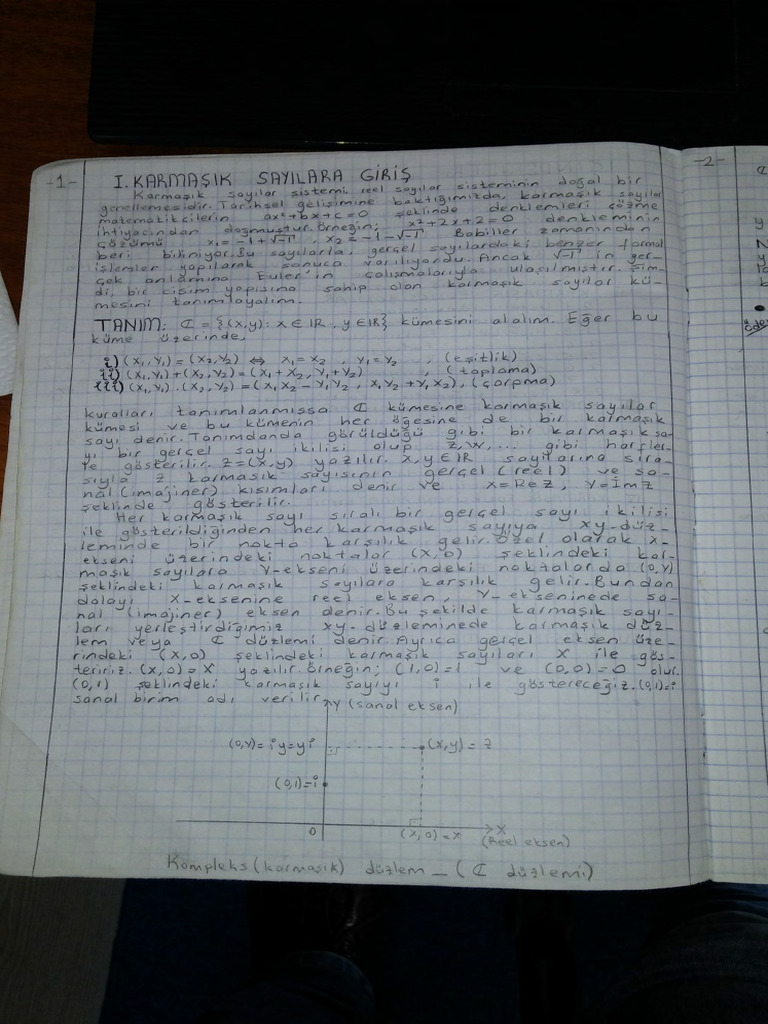 -1-
I. KARMAŞIK SAYILARA GİRİŞ
Karmaşık sayılar sistemi reel sayılar sisteminin doğal bir
genellemesidir. Tarihsel gelişimine baktığımızda, karmaşık sayılar
matematikçilerin ax²+bx+c=0 şeklinde denklemleri çözme
ihtiyacından doğmuştur. Örneğin; x²+2x+2=0 denkleminin
çözümü x₁=-1+√-1, x₂=-1-√-1 Babiller zamanından
beri biliniyor. Bu sayılarla, gerçel sayılardaki benzer formal
işlemler yapılarak sonuca varılıyordu. Ancak √-1 in ger-
çek anlamına Euler'in çalışmalarıyla ulaşılmıştır. Şim-
di bir cisim yapısına sahip olan karmaşık sayılar kü-
mesini tanımlayalım.
TANIM: ℂ = {(x,y): x∈IR, y∈IR} kümesini alalım. Eğer bu
küme üzerinde,
i) (x₁,y₁)=(x₂,y₂) ⇔ x₁=x₂, y₁=y₂, (eşitlik)
ii) (x₁,y₁)+(x₂,y₂)=(x₁+x₂,y₁+y₂), (toplama)
iii) (x₁,y₁).(x₂,y₂)=(x₁x₂-y₁y₂, x₁y₂+y₁x₂), (çarpma)
kuralları tanımlanmıssa ℂ kümesine karmaşık sayılar
kümesi ve bu kümenin her öğesine de bir karmaşık
sayı denir. Tanımdanda görüldüğü gibi bir karmaşık sa-
yı bir gerçel sayı ikilisi olup z,w,... gibi harfler-
le gösterilir. z=(x,y) yazılır. x,y∈IR sayılarına sıra-
sıyla z karmaşık sayısının gerçel (reel) ve sa-
nal (imajiner) kısımları denir ve x=Rez, y=İmz
şeklinde gösterilir.
Her karmaşık sayı sıralı bir gerçel sayı ikilisi
ile gösterildiğinden her karmaşık sayıya xy-düz-
leminde bir nokta karşılık gelir. Özel olarak x-
ekseni üzerindeki noktalar (x,0) şeklindeki kar-
maşık sayılara y-ekseni üzerindeki noktalarda (0,y)
şeklindeki karmaşık sayılara karşılık gelir. Bundan
dolayı x-eksenine reel eksen, y-ekseninede sa-
nal (imajiner) eksen denir. Bu şekilde karmaşık sayı-
ları yerleştirdiğimiz xy-düzleminede karmaşık düz-
lem veya ℂ düzlemi denir. Ayrıca gerçel eksen üze-
rindeki (x,0) şeklindeki karmaşık sayıları x ile gös-
teririz. (x,0)=x yazılır. Örneğin; (1,0)=1 ve (0,0)=0 olur.
(0,1) şeklindeki karmaşık sayıyı i ile göstereceğiz. (0,1)=i
sanal birim adı verilir.
y (sanal eksen)
(0,y)=iy=yi
(x,y)=z
(0,1)=i
0
(x,0)=x
x
(Reel eksen)
Kompleks (karmaşık) düzlem - (ℂ düzlemi)
-2-